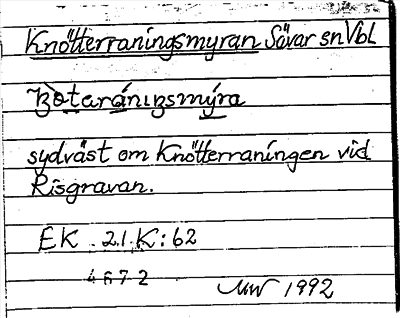 Knötterraningsmyran Sävar sn Vbl
sydväst om Knötterraningen vid
Risgravan.
EK . 21.K:62
4 6 7 2
MW 1992